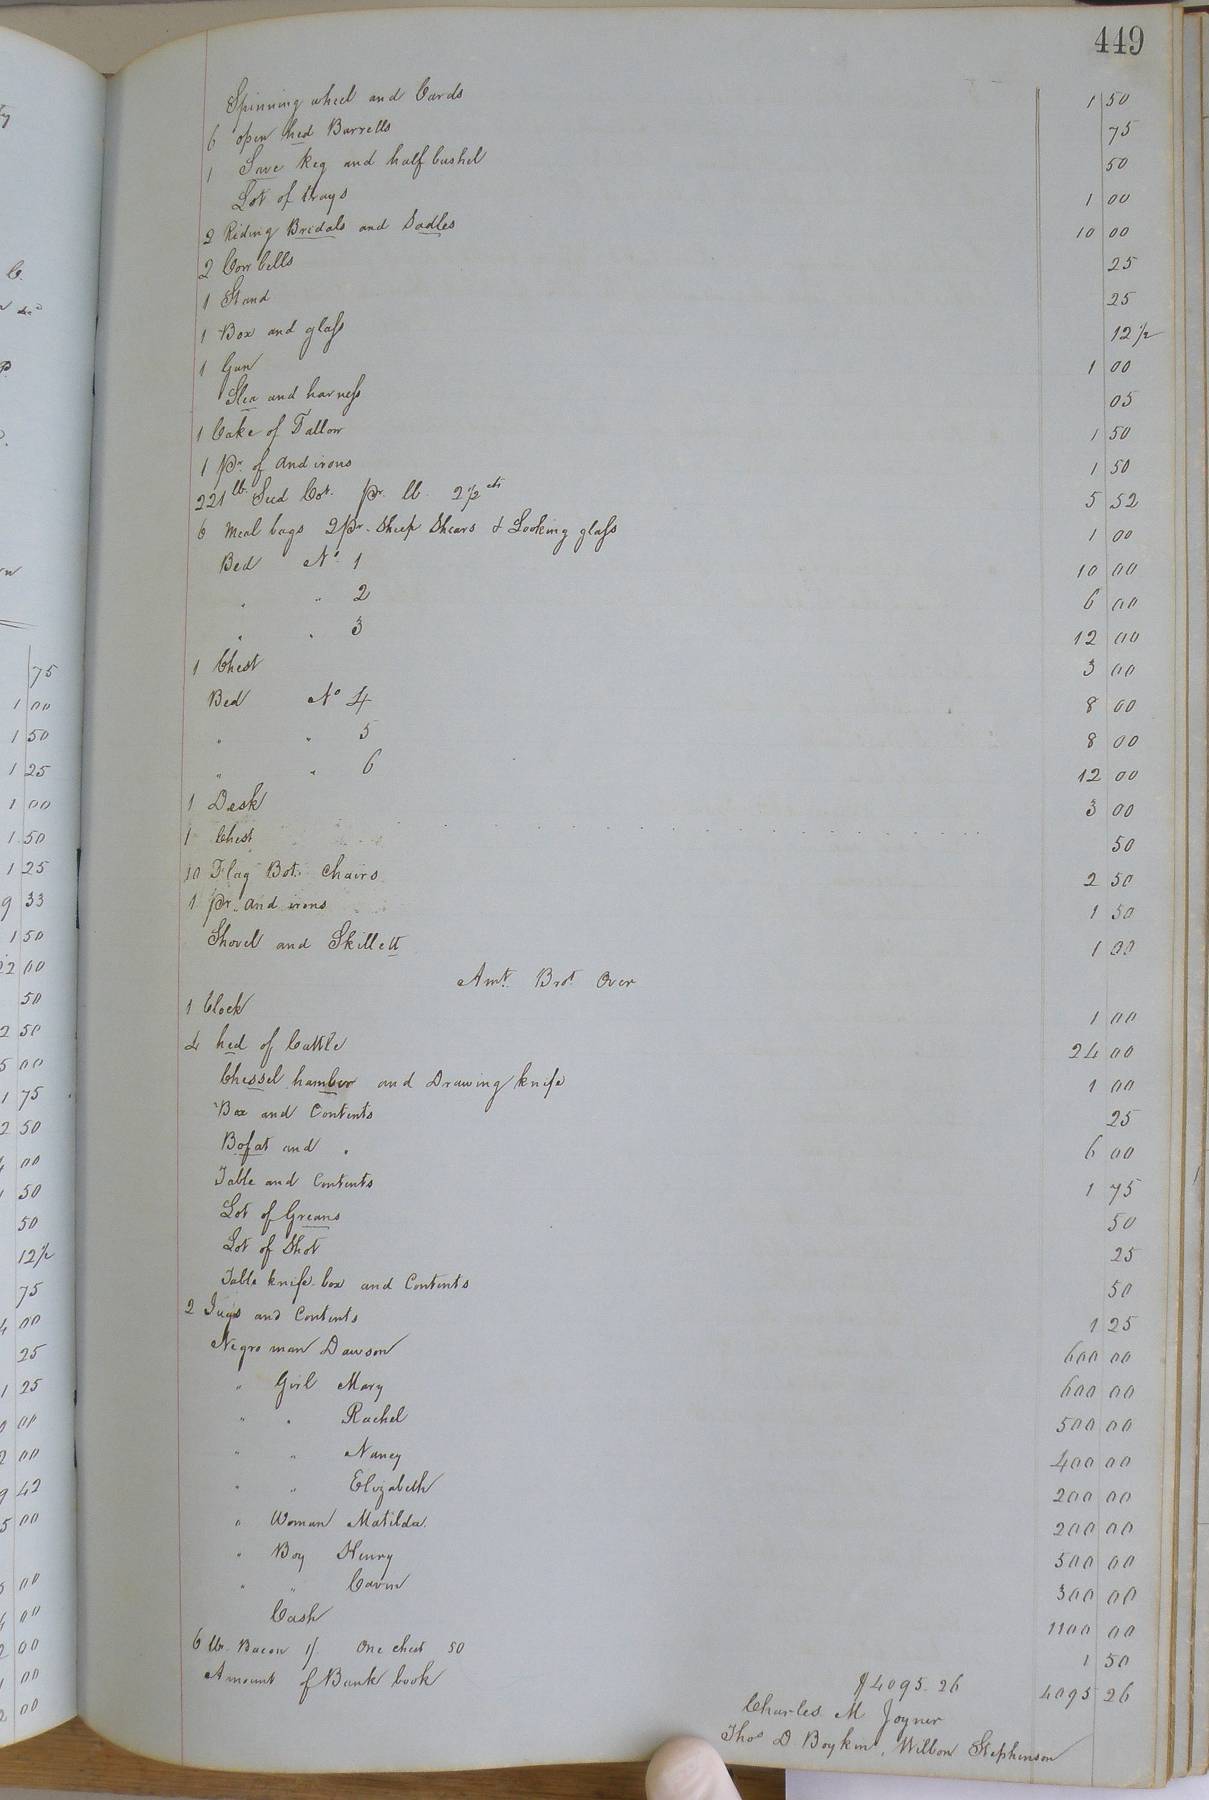 449
Spinning wheel and Cards 1 50
6 open hed Barrells 75
1 Sove keg and half bushel 50
Lot of trays 1 00
2 Riding Bridals and Sadles 10 00
2 Cow bells 25
1 Stand 25
1 Box and glass 12½
1 Gun 1 00
Slea and harness 05
1 Cake of Tallow 1 50
1 pr. of and irons 1 50
221 lb. Seed Cot. pr. lb. 2½ cts 5 52
6 meal bags 2 pr. Sheep Shears & Looking glass 1 00
Bed No. 1 10 00
" " 2 6 00
" " 3 12 00
1 Chest 3 00
Bed No 4 8 00
" " 5 8 00
" " 6 12 00
1 Desk 3 00
1 Chest 50
10 Flag Bot. Chairs 2 50
1 pr. and irons 1 50
Shovel and Skillett 1 00
Amt. Brot. Over
1 Clock 1 00
4 hed of Cattle 24 00
Chessel hamber and Drawing knife 1 00
Box and Contents 25
Bofat and " 6 00
Table and Contents 1 75
Lot of Greans 50
Lot of Shot 25
Table knife box and Contents 50
2 Jugs and Contents 1 25
Negro man Dawson 600 00
" Girl Mary 600 00
" " Rachel 500 00
" " Nancy 400 00
" " Elizabeth 200 00
" Woman Matilda 200 00
" Boy Henry 500 00
" " Cavin 300 00
Cash 1100 00
6 lb. Bacon 1/ One chest 50 1 50
Amount of Bank book $4095.26 4095 26
Charles M Joyner
Thos D Boykin, Willson Stephenson